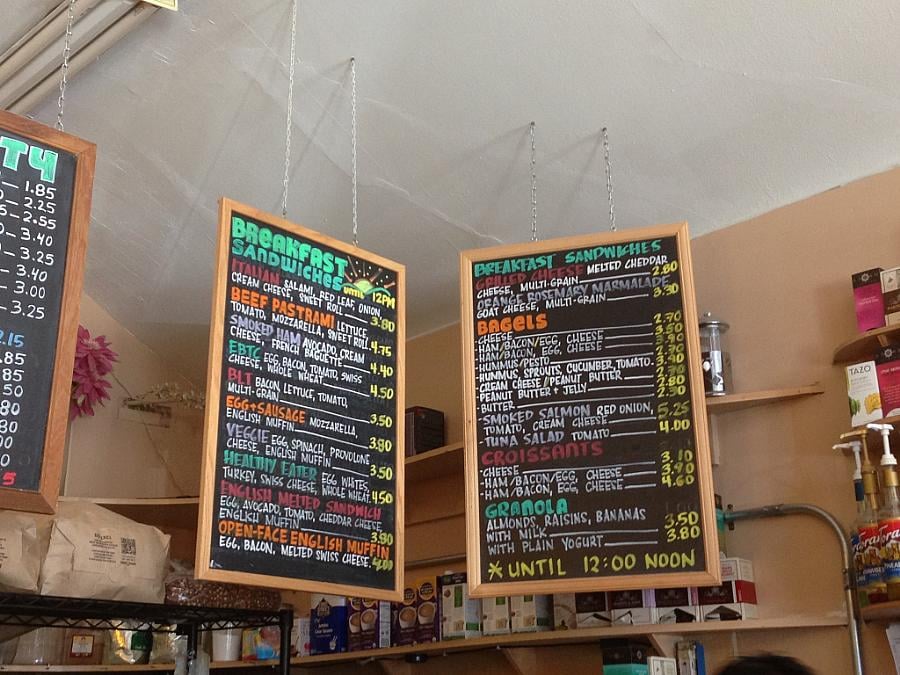 TY
1.85
2.25
2.55
3.40
3.25
3.40
3.00
3.25
2.15
.85
5
BREAKFAST
SANDWICHES
UNTIL 12PM
ITALIAN SALAMI, RED LEAF, ONION,
CREAM CHEESE, SWEET ROLL 3.80
BEEF PASTRAMI LETTUCE,
TOMATO, MOZZARELLA, SWEET ROLL 4.75
SMOKED HAM AVOCADO, CREAM
CHEESE, FRENCH BAGUETTE 4.40
EBTC EGG, BACON, TOMATO, SWISS
CHEESE, WHOLE WHEAT 4.50
BLT BACON, LETTUCE, TOMATO,
MULTI-GRAIN 3.50
EGG+SAUSAGE MOZZARELLA,
ENGLISH MUFFIN 3.80
VEGGIE EGG, SPINACH, PROVOLONE
CHEESE, ENGLISH MUFFIN 3.50
HEALTHY EATER EGG WHITES,
TURKEY, SWISS CHEESE, WHOLE WHEAT 4.50
ENGLISH MELTED SANDWICH
EGG, AVOCADO, TOMATO, CHEDDAR CHEESE
ENGLISH MUFFIN 3.80
OPEN-FACE ENGLISH MUFFIN
EGG, BACON, MELTED SWISS CHEESE, 4.00
BREAKFAST SANDWICHES
GRILLED CHEESE MELTED CHEDDAR
CHEESE, MULTI-GRAIN 2.80
ORANGE ROSEMARY MARMALADE
GOAT CHEESE, MULTI-GRAIN 3.30
BAGELS
-CHEESE 2.70
-HAM/BACON/EGG, CHEESE 3.50
-HAM/BACON, EGG, CHEESE
-HUMMUS/PESTO
-HUMMUS, SPROUTS, CUCUMBER, TOMATO
-CREAM CHEESE/PEANUT BUTTER
-PEANUT BUTTER + JELLY 2.80
-BUTTER
-SMOKED SALMON RED ONION,
TOMATO, CREAM CHEESE 5.25
-TUNA SALAD TOMATO 4.00
CROISSANTS
-CHEESE 3.10
-HAM/BACON/EGG, CHEESE 3.90
-HAM/BACON, EGG, CHEESE 4.60
GRANOLA
ALMONDS, RAISINS, BANANAS
WITH MILK 3.50
WITH PLAIN YOGURT 3.80
*UNTIL 12:00 NOON
TAZO